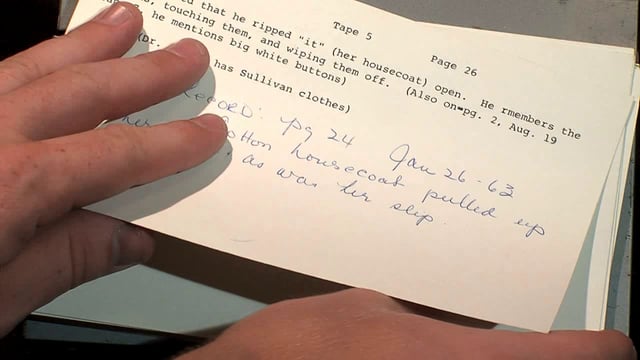 Tape 5 Page 26
ed that he ripped "it" (her housecoat) open. He rmembers the
, touching them, and wiping them off. (Also on pg. 2, Aug. 19
, he mentions big white buttons)
(Dr. has Sullivan clothes)
RECORD: pg 24 Jan 26-63
her cotton housecoat pulled up
as was her slip.